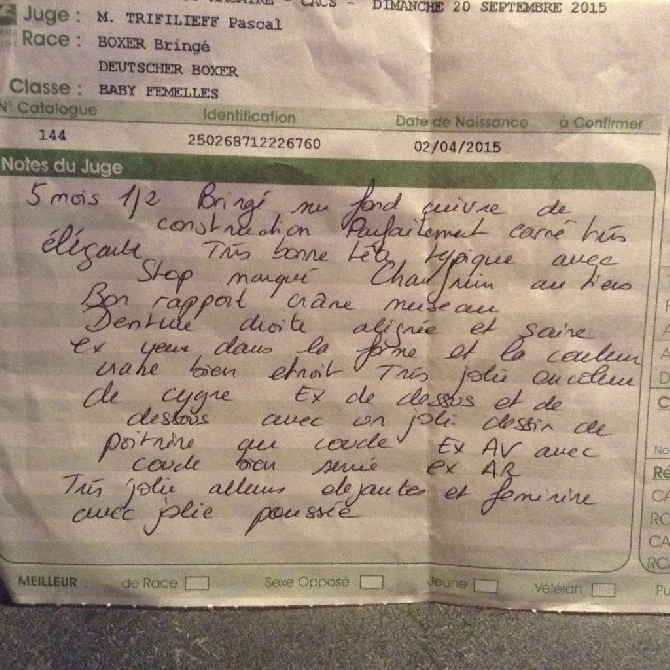 CACS - DIMANCHE 20 SEPTEMBRE 2015
Juge : M. TRIFILIEFF Pascal
Race : BOXER Bringé
DEUTSCHER BOXER
Classe : BABY FEMELLES
N° Catalogue Identification Date de Naissance à Confirmer
144 250268712226760 02/04/2015
Notes du Juge
5 mois 1/2 Bringé sur fond cuivre de
construction Parfaitement carré très
élégante Très bonne tête typique avec
Stop marqué Chanfrein au tiers
Bon rapport crâne museau
Denture droite alignée et saine
ex yeux dans la forme et la couleur
crane bien etroit Très jolie encolure
de cygne Ex de dessus et de
dessous avec un joli dessin de
poitrine au coude Ex AV avec
coude bien serré ex AR
Très jolie allures dejantes et feminine
avec jolie poussée
MEILLEUR : de Race Sexe Opposé Jeune Vétéran